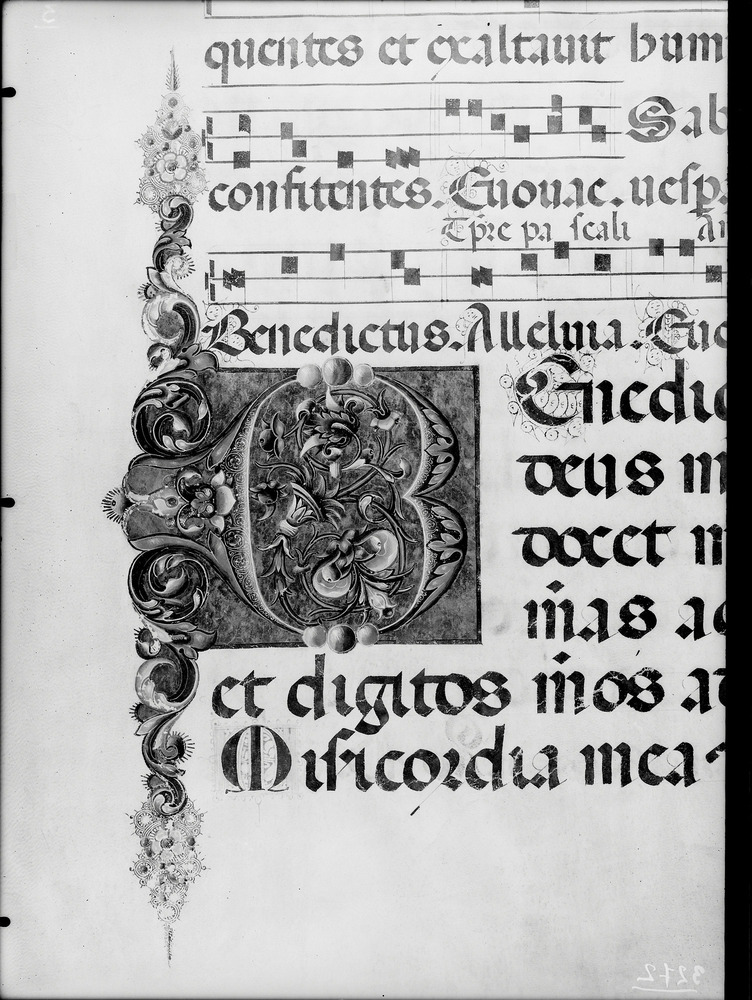 quentes et exaltavit hum
Sab
confitentes. Euouae. vesp.
Tp̄re pa scali An
Benedictus. Alleluia. Euo
B Enedic
deus m
docet m
m̄as ad
et digitos m̄os ad
Misicordia mea
3272